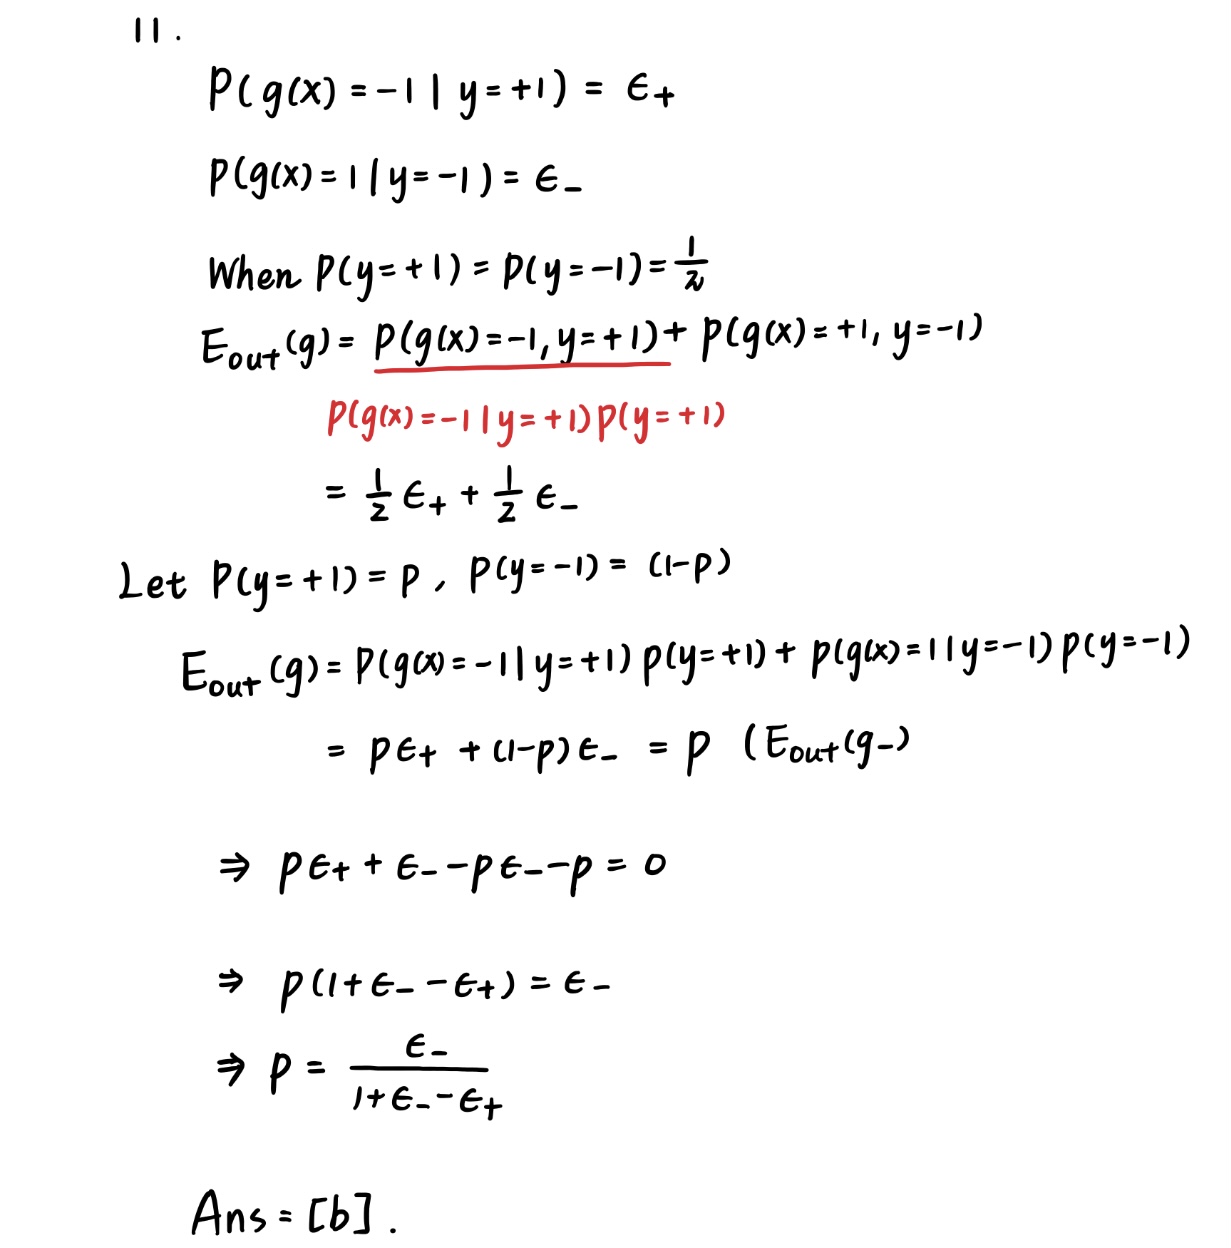 11.
P(g(x) = -1 | y = +1) = ϵ₊
P(g(x) = 1 | y = -1) = ϵ₋
When P(y = +1) = P(y = -1) = 1/2
E_out(g) = P(g(x) = -1, y = +1) + P(g(x) = +1, y = -1)
P(g(x) = -1 | y = +1) P(y = +1)
= 1/2 ϵ₊ + 1/2 ϵ₋
Let P(y = +1) = p, P(y = -1) = (1-p)
E_out(g) = P(g(x) = -1 | y = +1) P(y = +1) + P(g(x) = 1 | y = -1) P(y = -1)
= pϵ₊ + (1-p)ϵ₋ = p (E_out(g₋)
⇒ pϵ₊ + ϵ₋ - pϵ₋ - p = 0
⇒ p(1 + ϵ₋ - ϵ₊) = ϵ₋
⇒ p = ϵ₋ / (1 + ϵ₋ - ϵ₊)
Ans = [b].